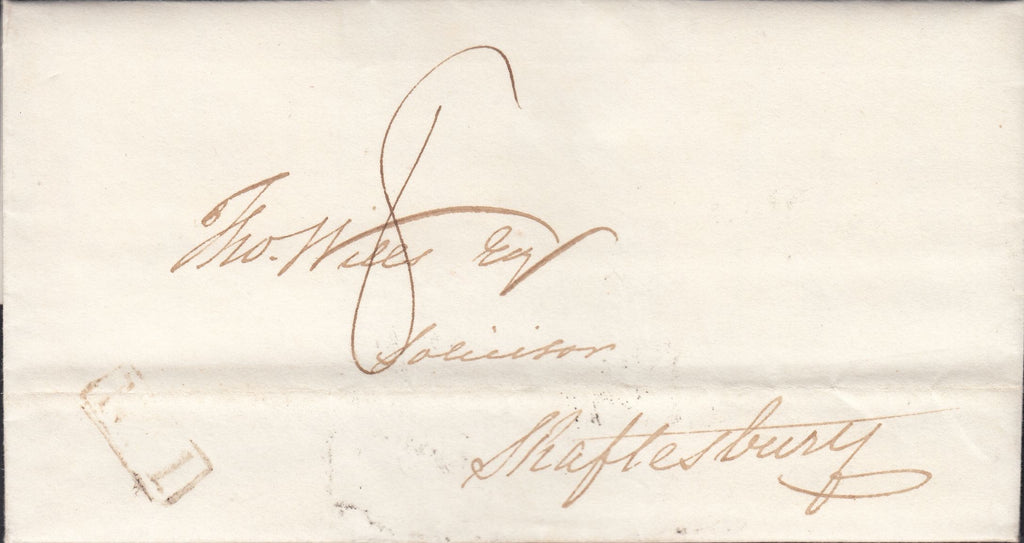 8
Tho. Wills Esq
Solicitor
Shaftesbury